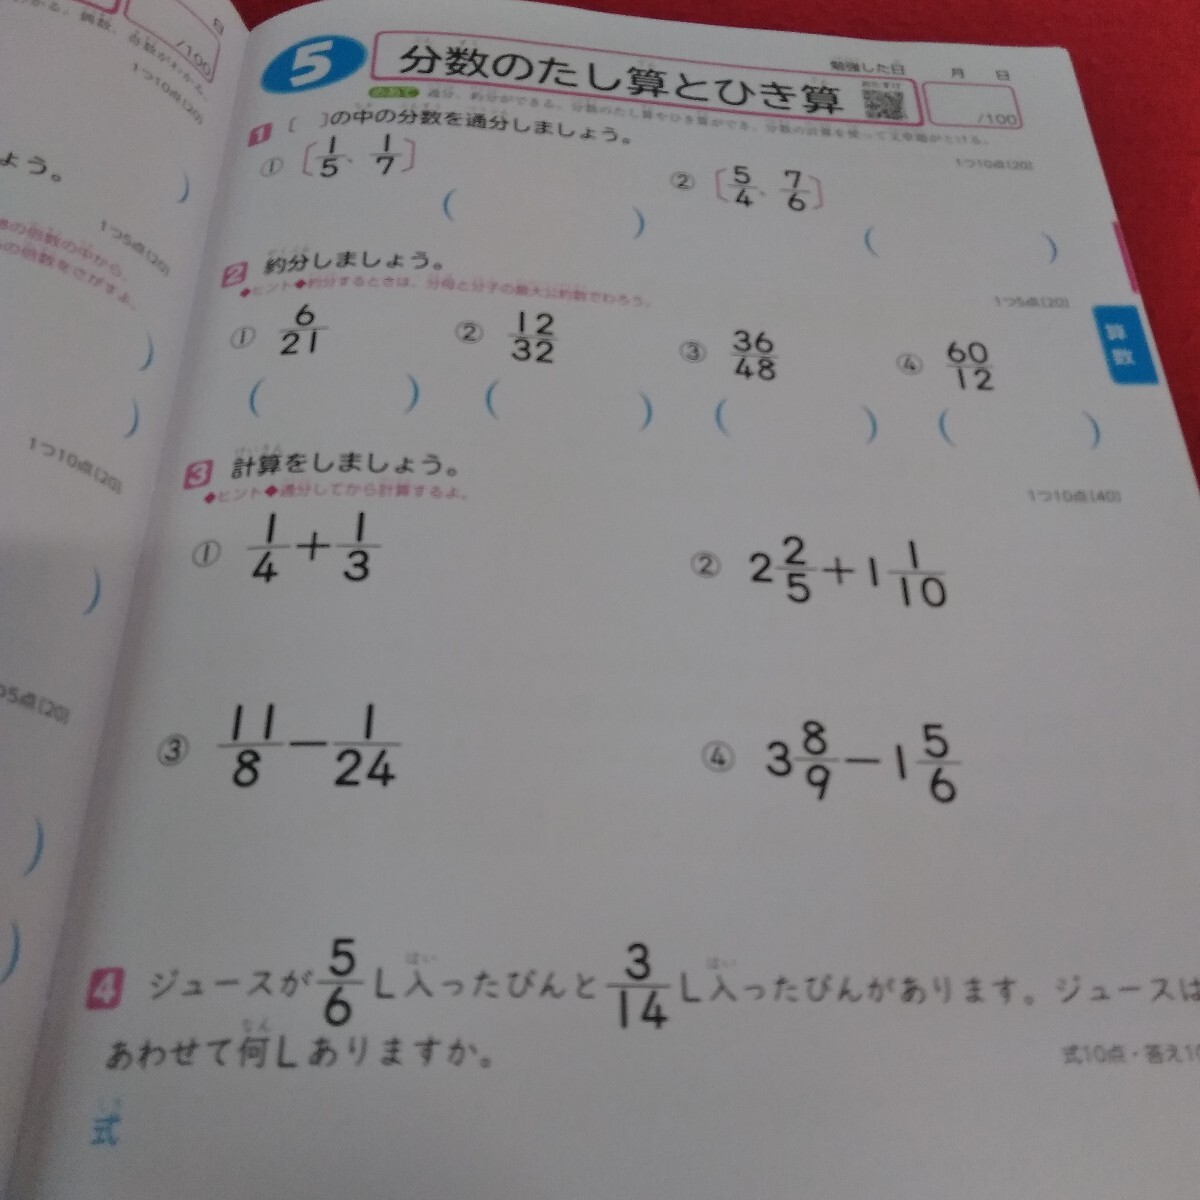 5 分数のたし算とひき算
勉強した日 月 日
/100
めあて 通分、約分ができる。分数のたし算やひき算ができ、分数の計算を使って文章題がとける。
1 〔 〕の中の分数を通分しましょう。
1つ10点(20)
① 〔1/5、1/7〕
② 〔5/4、7/6〕
( )
( )
2 約分しましょう。
◆ヒント◆約分するときは、分母と分子の最大公約数でわろう。
1つ5点(20)
① 6/21 ② 12/32 ③ 36/48 ④ 60/12
( ) ( ) ( ) ( )
算数
3 計算をしましょう。
◆ヒント◆通分してから計算するよ。
1つ10点(40)
① 1/4+1/3
② 2 2/5+1 1/10
③ 11/8−1/24
④ 3 8/9−1 5/6
4 ジュースが5/6L入ったびんと3/14L入ったびんがあります。ジュースは
あわせて何Lありますか。
式10点・答え10
式
日
/100
1つ10点(20)
ょう。
1つ5点(20)
の倍数の中から、
の倍数をさがすよ。
1つ10点(20)
つ5点(20)